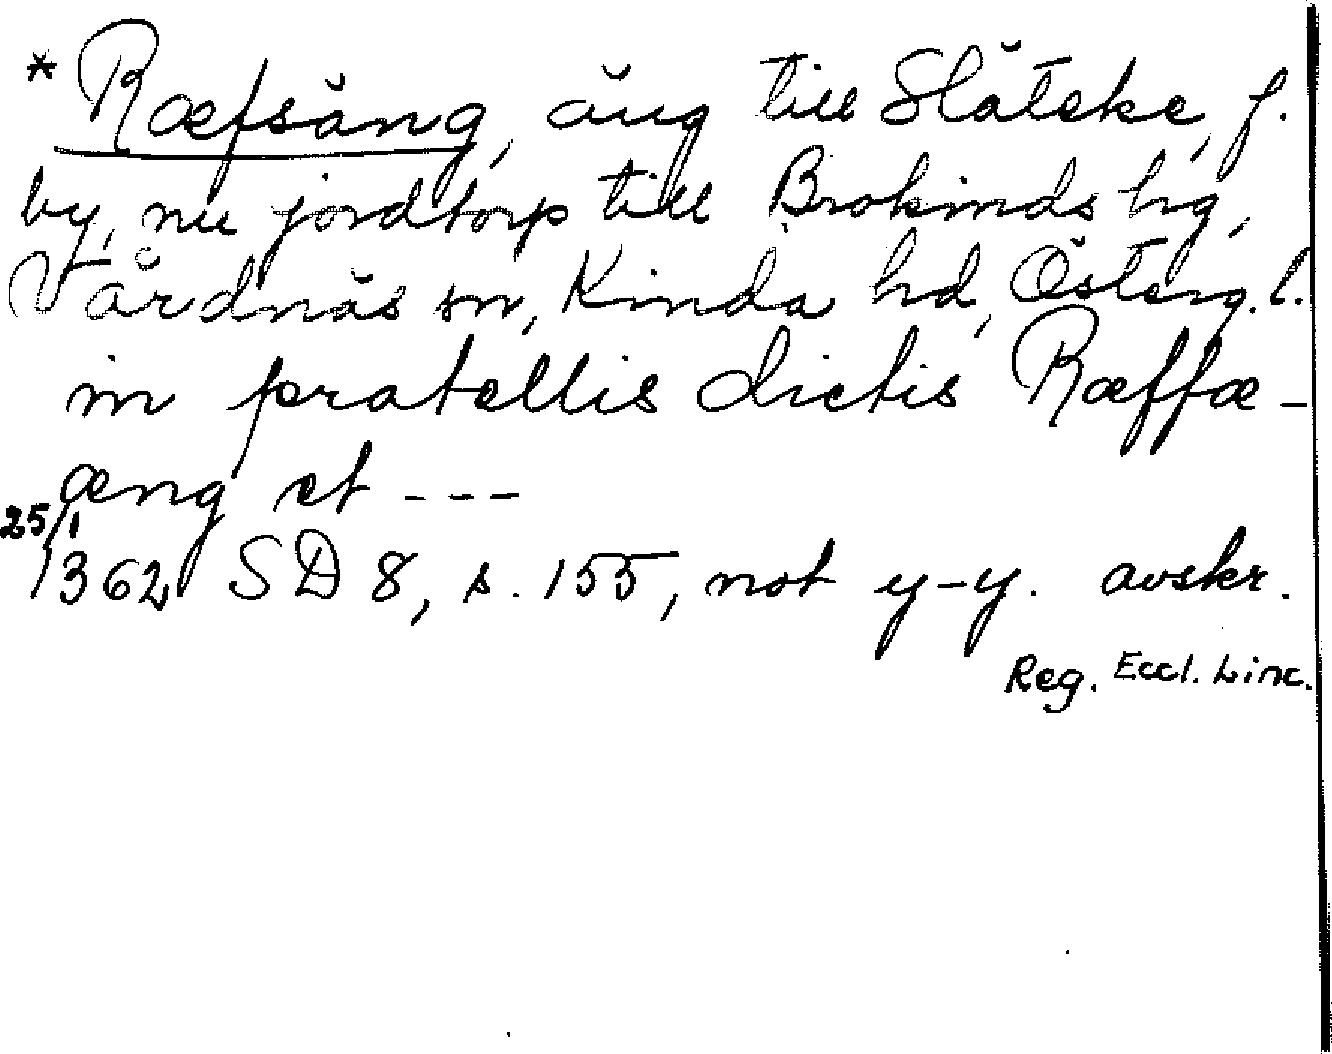 * Ræfsäng, äng till Släteke, f.
by, nu jordtorp till Brokinds hg,
Vårdnäs sn, Kinda hd, Österg. l.
in pratellis dictis Ræffæ-
æng et ---
25/1
1362 SD 8, s. 155, not y-y. avskr.
Reg. Eccl. Linc.